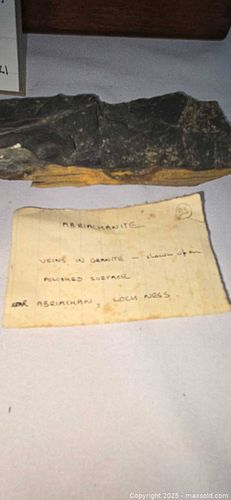 23
ABRIACHANITE
VEINS IN GRANITE - shown upon
POLISHED SURFACE
NEAR ABRIACHAN, LOCH NESS.
Copyright © 2025 - maxsold.com